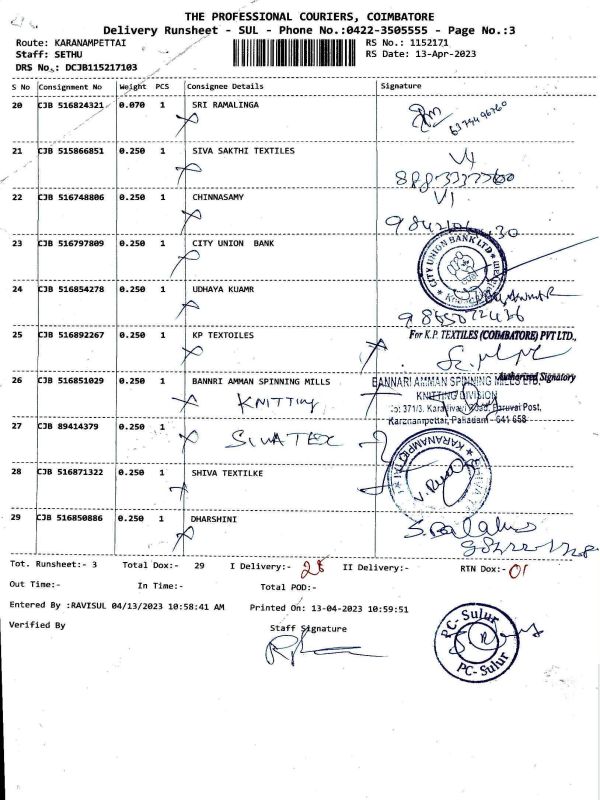 THE PROFESSIONAL COURIERS, COIMBATORE
Delivery Runsheet - SUL - Phone No.:0422-3505555 - Page No.:3
Route: KARANAMPETTAI RS No.: 1152171
Staff: SETHU RS Date: 13-Apr-2023
DRS No.: DCJB115217103
S No Consignment No Weight PCS Consignee Details Signature
20 CJB 516824321 0.070 1 SRI RAMALINGA
21 CJB 515866851 0.250 1 SIVA SAKTHI TEXTILES
22 CJB 516748806 0.250 1 CHINNASAMY
23 CJB 516797809 0.250 1 CITY UNION BANK
CITY UNION BANK LTD
24 CJB 516854278 0.250 1 UDHAYA KUAMR
25 CJB 516892267 0.250 1 KP TEXTOILES
For K.P. TEXTILES (COIMBATORE) PVT LTD.,
Authorised Signatory
26 CJB 516851029 0.250 1 BANNRI AMMAN SPINNING MILLS
KNITTING
BANNARI AMMAN SPINNING MILLS LTD.
KNITTING DIVISION
Paruvai Post,
Karanampettai, Palladam - 641 658
27 CJB 89414379 0.250 1
SIVATEX
KARANAMPETTAI
28 CJB 516871322 0.250 1 SHIVA TEXTILKE
29 CJB 516850886 0.250 1 DHARSHINI
Tot. Runsheet:- 3 Total Dox:- 29 I Delivery:- 28 II Delivery:- RTN Dox:- 01
Out Time:- In Time:- Total POD:-
Entered By :RAVISUL 04/13/2023 10:58:41 AM Printed On: 13-04-2023 10:59:51
Verified By Staff Signature
PC- Sulur
PC- Sulur